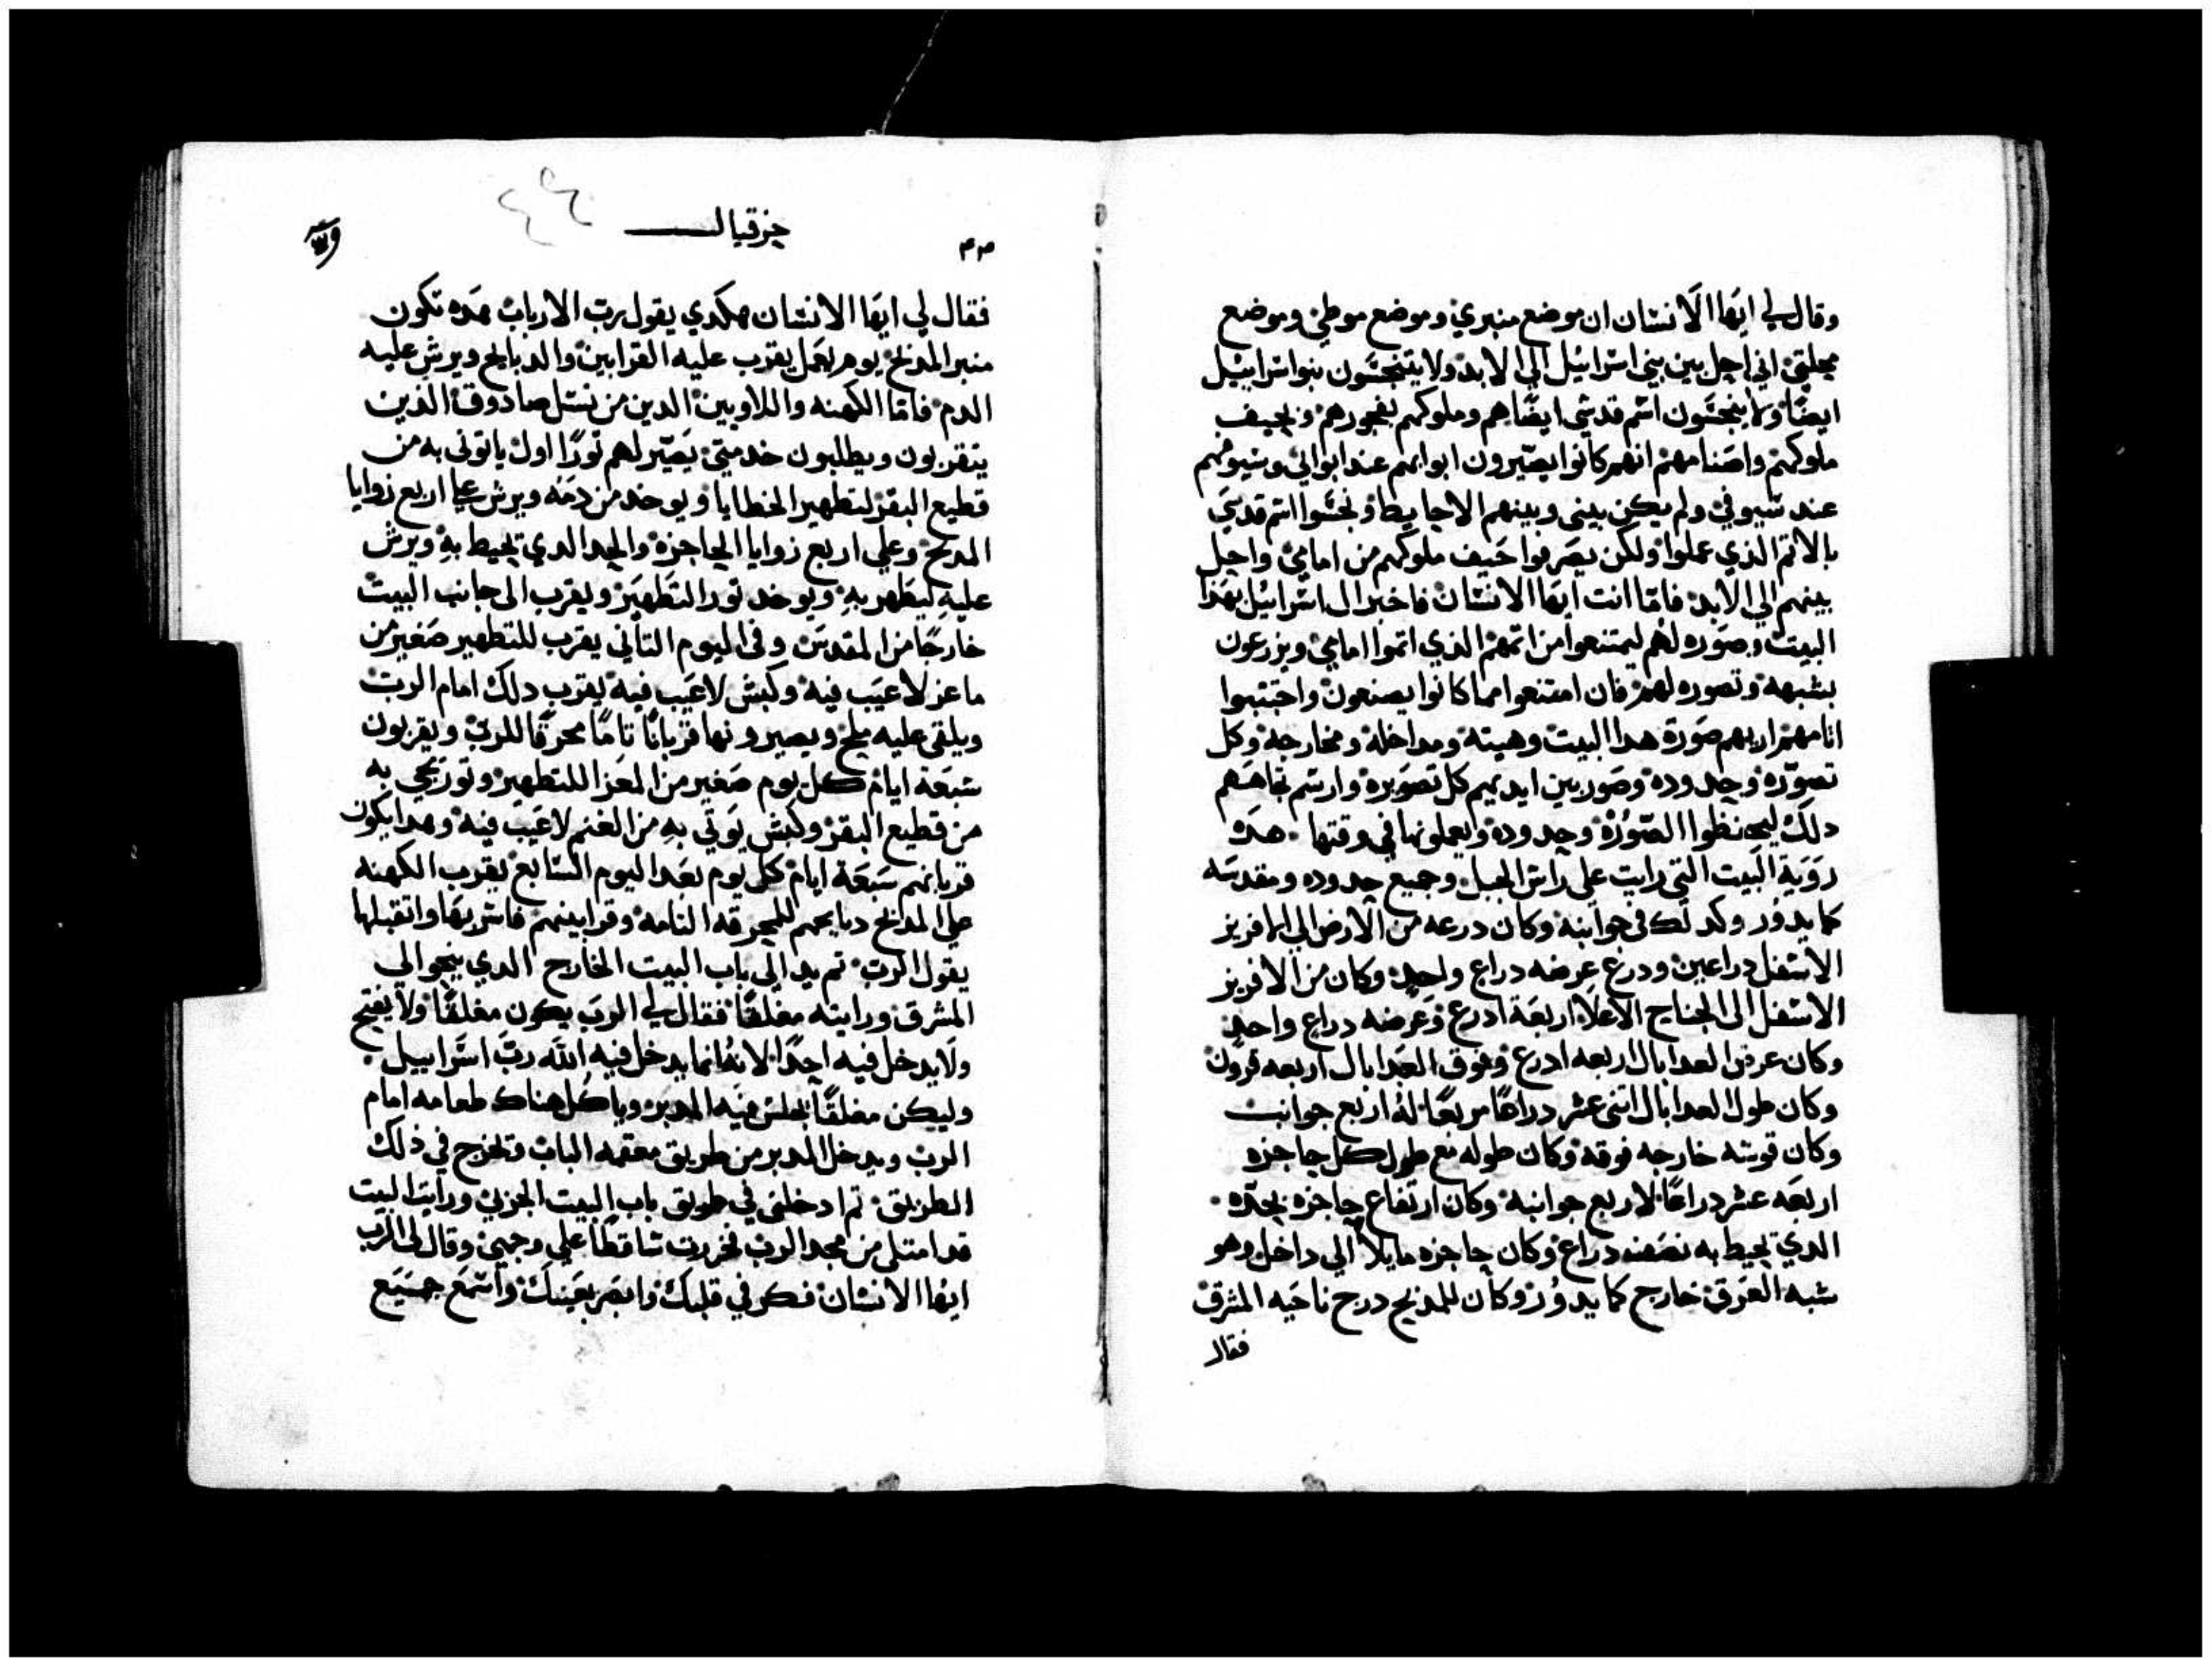 وقال لي ايها الانسان ان موضع منبري وموضع موطي وموضع
محلتي اني احل بين بني اسراييل الي الابد ولا يتنجسون بنو اسراييل
ايضا ولا ينجسون اسم قدسي ايضا هم وملوكهم بفجورهم وبجيف
ملوكهم واصنامهم انهم كانوا يصيرون ابوابهم عند ابوابي وسيوفهم
عند سيوفي ولم يكن بيني وبينهم الا حايط ونجسوا اسم قدسي
بالاثم الذي عملوا ولكن يصرفوا جيف ملوكهم من امامي واحل
بينهم الي الابد فاما انت ايها الانسان فاخبر ال اسراييل بهذا
البيت وصوره لهم ليمتنعوا من اثمهم الذي اثموا امامي ويزرعون
بشبهه وتصوره لهم فان امتنعوا مما كانوا يصنعون واجتنبوا
اثامهم اريهم صورة هدا البيت وهيته ومداخله ومخارجه وكل
تصوره وحدوده وصور بين ايديهم كل تصويره وارسم تجاههم
دلك ليحفظوا الصورة وحدوده ويعملونها في وقتها هده
روية البيت التي رايت علي راس الجبل وجميع حدوده ومقدسه
كما يدور وكدلك في جوانبه وكان درعه من الارض الي الافريز
الاسفل دراعين ودرع عرضه دراع واحد وكان من الافريز
الاسفل الى الجناح الاعلا اربعة ادرع وعرضه دراع واحد
وكان عرض العدابال اربعه ادرع وفوق العدابال اربعه قرون
وكان طول العدابال اثني عشر دراعا مربعا له اربع جوانب
وكان قوسه خارجه فوقه وكان طوله مع طول كل حاجزه
اربعه عشر دراعا لاربع جوانبه وكان ارتفاع حاجزه بحده
الدي تحيط به نصف دراع وكان حاجزه مايلا الي داخل وهو
شبه العرق خارج كما يدور وكان للمدبح درج ناحيه المشرق
فقال
حزقيال
٤٤
٤٣
فقال لي ايها الانسان هكدي يقول رب الارباب هده تكون
منبر المدبح يوم يعمل يقرب عليه القرابين والدبايح ويرش عليه
الدم فاما الكهنه واللاويين الدين من نسل صادوق الذين
يتقربون ويطلبون خدمتي يصير لهم ثورا اول ياتوني به من
قطيع البقر لتطهير الخطايا ويوخد من دمه ويرش علي اربع زوايا
المدبح وعلي اربع زوايا الحاجزه والحد الدي تحيط به ويرش
عليه ليطهر به ويوخد ثور التطهير ويقرب الى جانب البيت
خارجا من المقدس وفى اليوم التاني يقرب للتطهير صغير من
ماعز لا عيب فيه وكبش لا عيب فيه يقرب دلك امام الرب
ويلقى عليه ملح ويصيرونها قربانا تاما محرقا للرب ويقربون
سبعة ايام كل يوم صغير من المعز للتطهير وثور يجي به
من قطيع البقر وكبش يوتي به من الغنم لا عيب فيه وهدا يكون
قربانهم سبعة ايام كل يوم بعد اليوم السابع يقرب الكهنه
علي المدبح دبايحهم للمحرقه التامه وقرابينهم فاسر بها واتقبلها
يقول الرب تم بدالي باب البيت الخارج الدي ينحو الي
المشرق ورايته مغلقا فقال لي الرب يكون مغلقا ولا يفتح
ولا يدخل فيه احدا لانه انما يدخل فيه الله رب اسراييل
وليكن مغلقا يجلس فيه المدبر وياكل هناك طعامه امام
الرب ويدخل المدبر من طريق مقدمه الباب وتخرج في ذلك
الطريق تم ادخلني في طريق باب البيت الجربي ورايت البيت
قد امتلى من مجد الرب فخررت ساقطا علي وجهي وقال لي الرب
ايها الانسان فكر في قلبك وابصر بعينك واسمع جميع